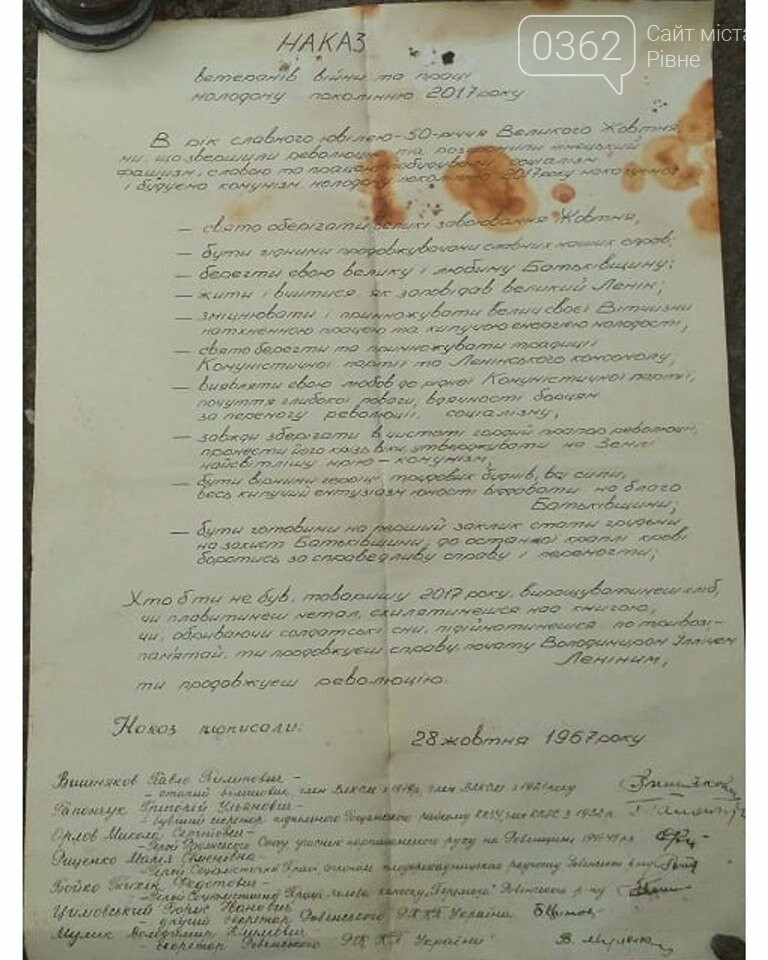 0362
Сайт міста
Рівне
НАКАЗ
ветеранів війни та праці
молодому поколінню 2017 року
В рік славного ювілею - 50-річчя Великого Жовтня,
ми, що звершили революцію та розгромили німецький
фашизм, славою та працею побудували соціалізм
і будуємо комунізм, молодому поколінню 2017 року наказуємо:
— свято оберігати великі завоювання Жовтня,
— бути гідними продовжувачами славних наших справ;
— берегти свою велику і любиму Батьківщину;
— жити і вчитися як заповідав великий Ленін;
— зміцнювати і примножувати велич своєї Вітчизни
натхненною працею та кипучою енергією молодості,
— свято берегти та примножувати традиції
Комуністичної партії та Ленінського комсомолу;
— виявляти свою любов до рідної Комуністичної партії,
почуття глибокої поваги, вдячності борцям
за перемогу революції, соціалізму;
— завжди зберігати в чистоті гордий прапор революції,
пронести його крізь віки, утверджувати на Землі
найсвітлішу мрію - комунізм,
— бути вірними героїці трудових буднів, всі сили,
весь кипучий ентузіазм юності віддавати на благо
Батьківщини;
— бути готовими на перший заклик стати грудьми
на захист Батьківщини, до останної краплі крові
боротись за справедливу справу і перемогти;
Хто б ти не був, товаришу 2017 року, вирощуватимеш хліб,
чи плавитимеш метал, схилятимешся над книгою,
чи, обриваючи солдатські сни, підійматимешся по тривозі-
пам'ятай, ти продовжуєш справу, почату Володимиром Іллічем
Леніним,
ти продовжуєш революцію.
Наказ підписали:
28 жовтня 1967 року
Вишняков Павло Пилипович -
- старий більшовик, член ВЛКСМ з 1918 р. член
Гапончук Григорій Ульянович -
- бувший секретар підпільного райкому
Орлов Микола Сергійович -
- Герой Радянського Союзу, учасник партизанського руху на Ровенщині 1941-45 р.р.
Яценко Марія Семенівна -
- Герой Соціалістичної Праці,
Бойко Тихін Федотович -
- Герой Соціалістичної Праці, голова колгоспу "Перемога" Ровенського р-ну
Цимовський Борис Іванович
- другий секретар Ровенського КП України
Мулик Володимир Климович
- секретар Ровенського КП України